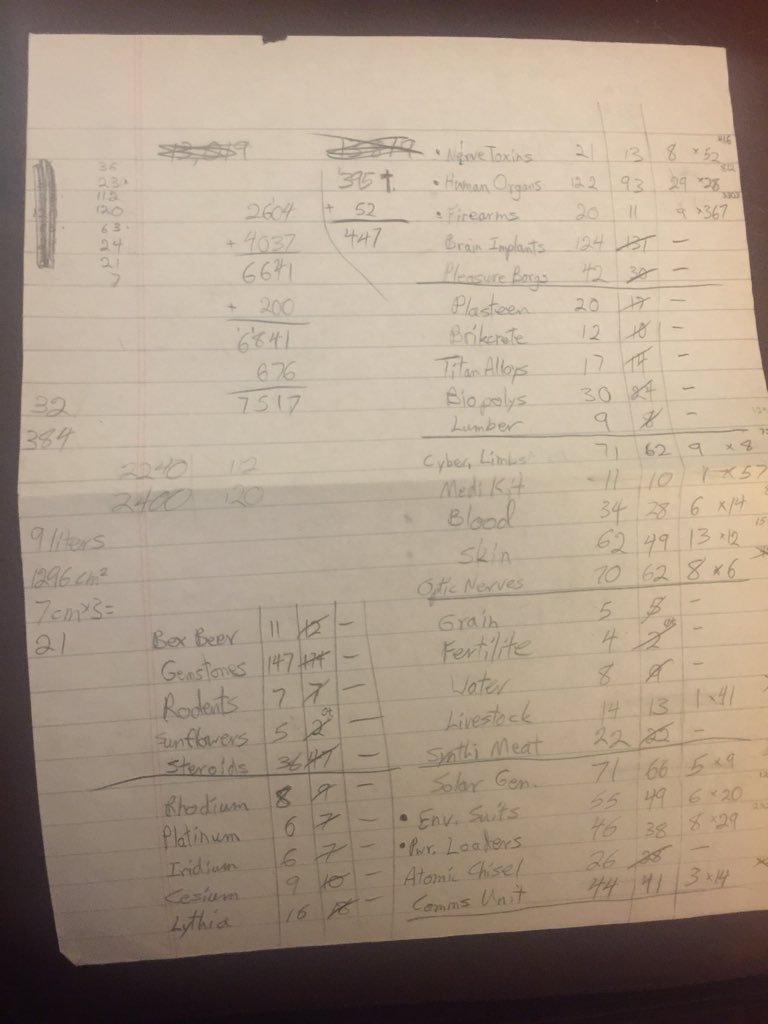 36
23.
112
120
63.
24
21
7
2604
+ 4037
6641
+ 200
6841
676
7517
395 t.
+ 52
447
32
384
2240 112
2400 120
9 liters
1296 cm²
7cm x3=
21
• Nerve Toxins 21 13 8 x52
• Human Organs 122 93 29 x28
• Firearms 20 11 9 x367
Brain Implants 124 131 —
Pleasure Borgs 42 30 —
Plasteen 20 17 —
Brikcrete 12 10 —
Titan Alloys 17 14 —
Biopolys 30 24 —
Lumber 9 8 —
Cyber, Limbs 71 62 9 x8
Medi Kit 11 10 1 x57
Blood 34 28 6 x14
Skin 62 49 13 x12
Optic Nerves 70 62 8 x6
Grain 5 5 —
Fertilite 4 2 —
Water 8 —
Livestock 14 13 1 x41
Synthi Meat 22 22 —
Solar Gen. 71 66 5 x9
• Env. Suits 55 49 6 x20
• Pwr. Loaders 46 38 8 x29
Atomic Chisel 26 28 —
Comms Unit 44 41 3 x14
Bex Beer 11 12 —
Gemstones 147 174 —
Rodents 7 7 —
Sunflowers 5 2 —
Steroids 36 47 —
Rhodium 8 9 —
Platinum 6 7 —
Iridium 6 7 —
Cesium 9 10 —
Lythia 16 18 —